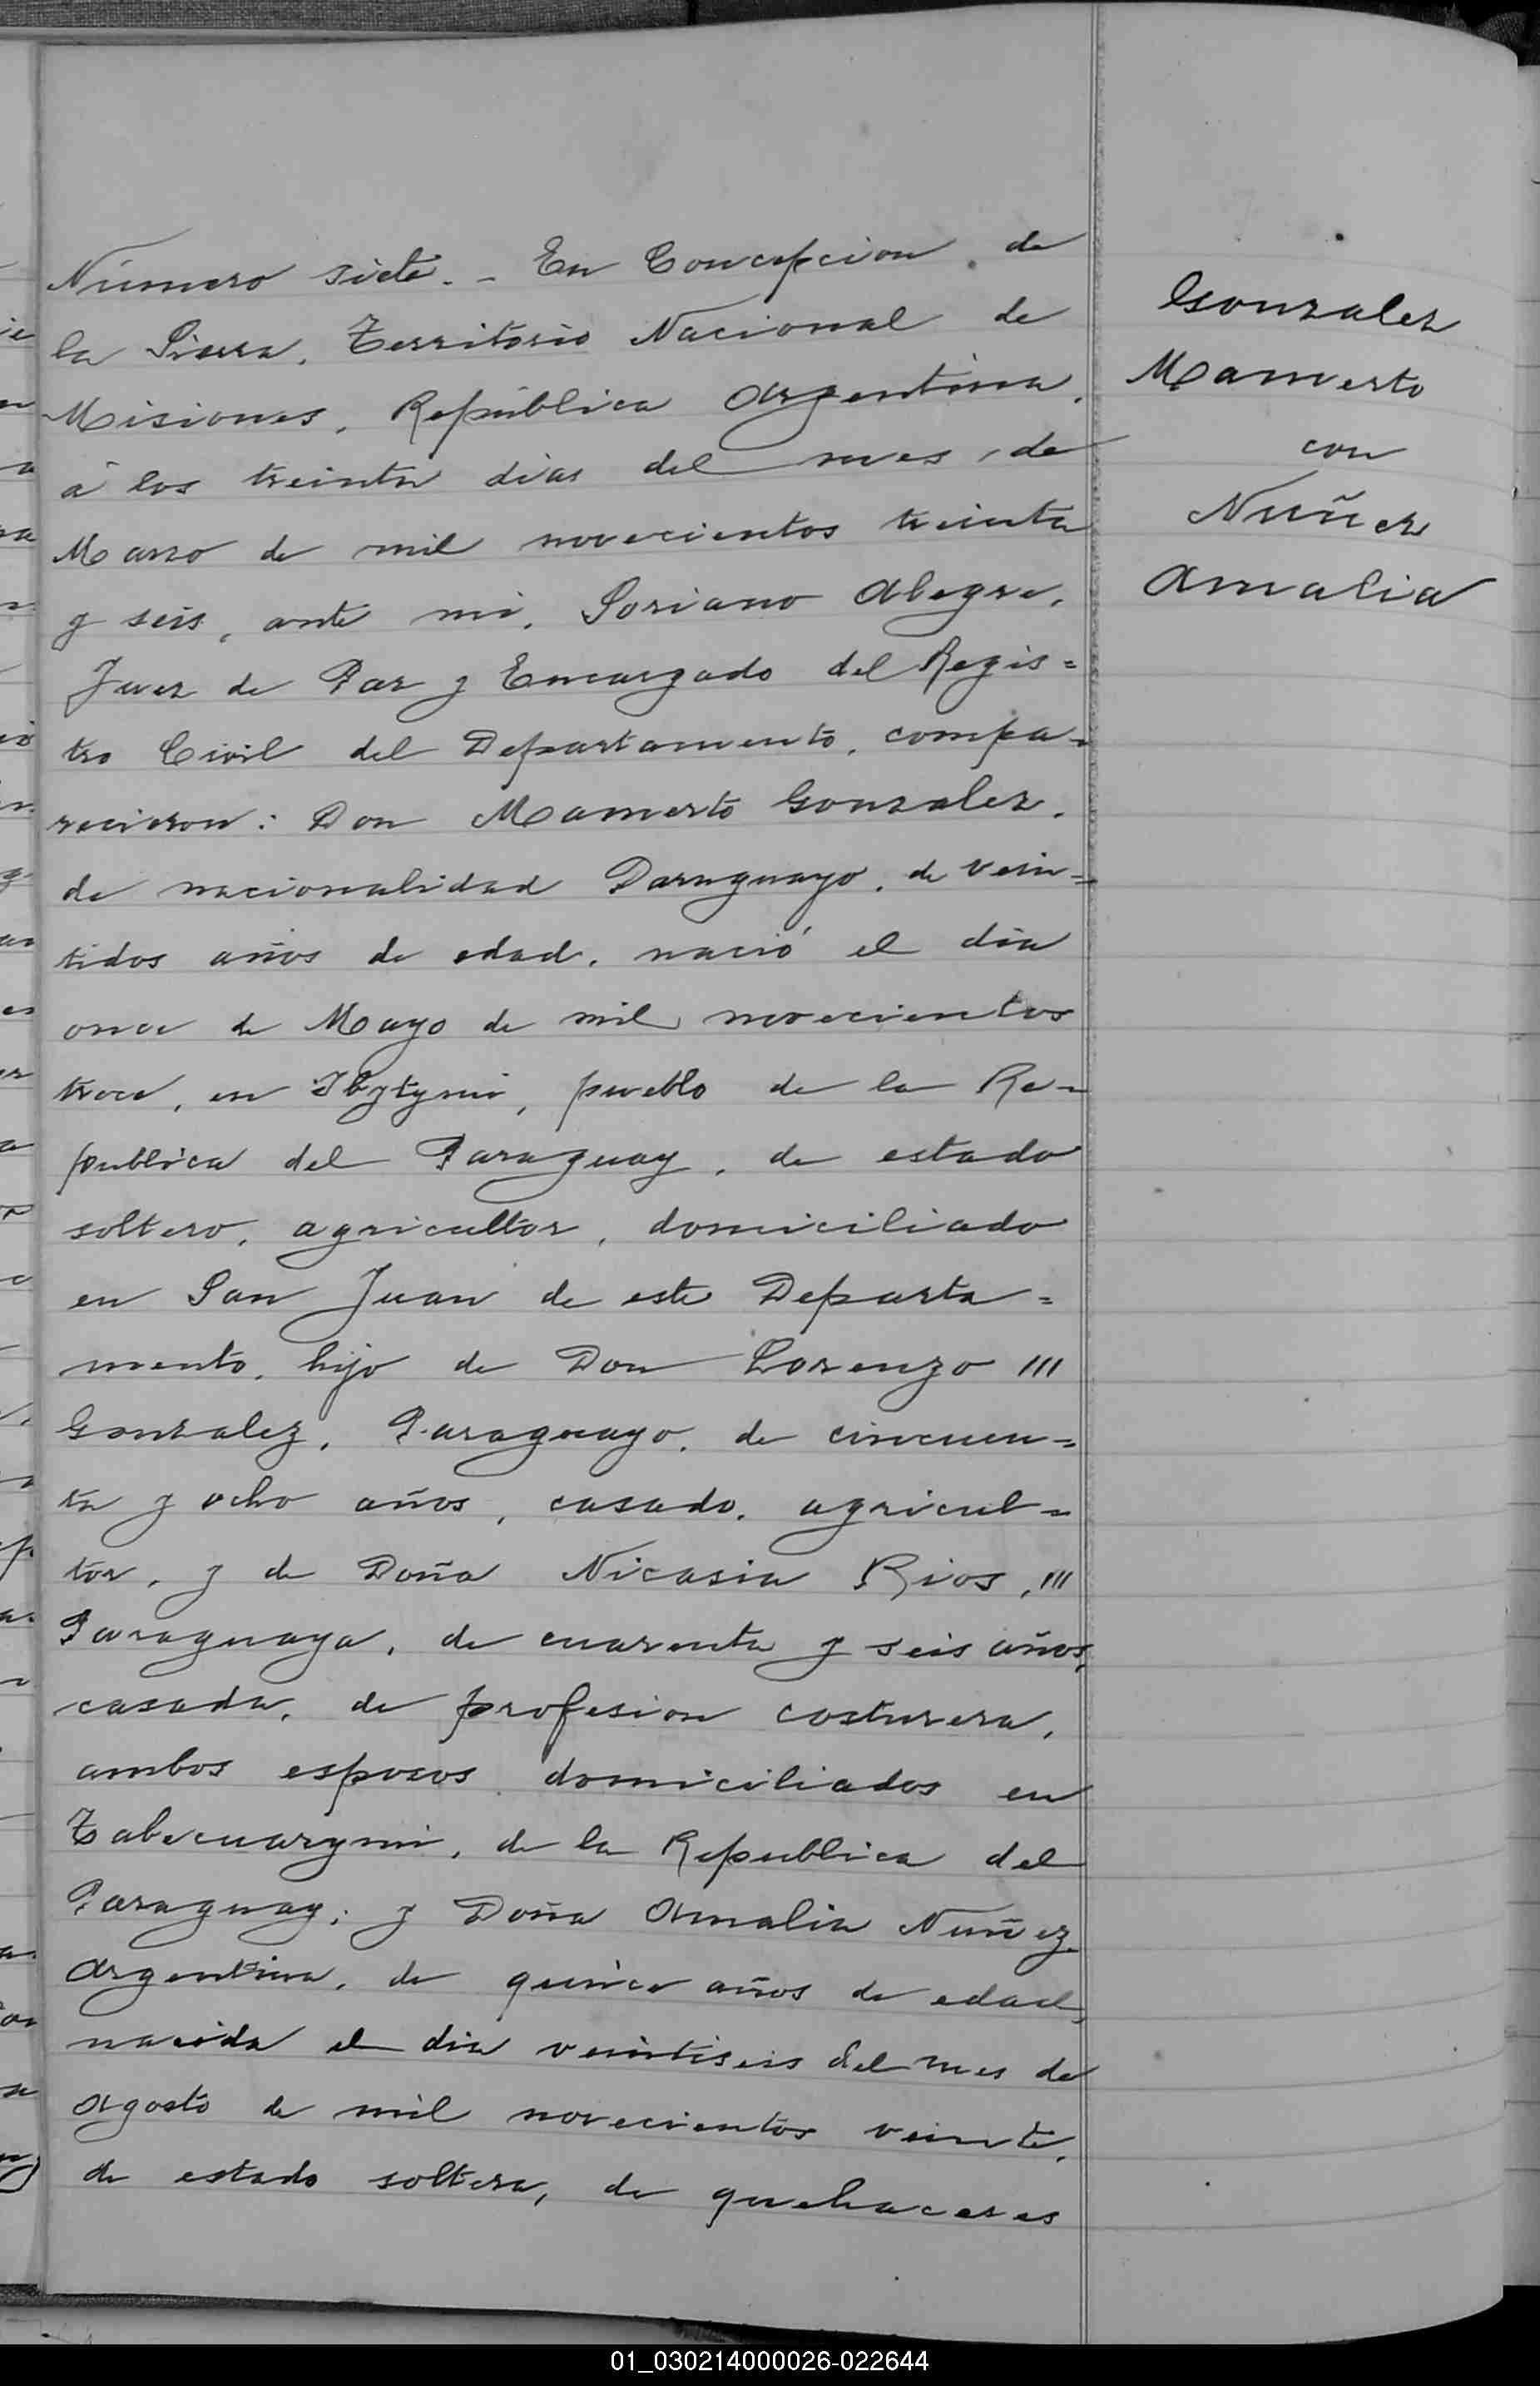 Número siete. - En Concepcion de
la Sierra, Territorio Nacional de
Misiones, República Argentina,
á los treinta dias del mes, de
Marzo de mil novecientos treinta
y seis, ante mi, Soriano Alegre,
Juez de Paz y Encargado del Regis=
tro Civil del Departamento, compa=
recieron: Don Mamerto Gonzalez,
de nacionalidad Paraguayo, de vein=
tidos años de edad, nació el dia
once de Mayo de mil novecientos
trece, en Ibytymi, pueblo de la Re=
publica del Paraguay, de estado
soltero, agricultor, domiciliado
en San Juan de este Departa=
mento, hijo de Don Lorenzo ///
Gonzalez, Paraguayo, de cincuen=
ta y ocho años, casado, agricul=
tor, y de Doña Nicasia Rios, ///
Paraguaya, de cuarenta y seis años,
casada, de profesion costurera,
ambos esposos domiciliados en
de la Republica del
Paraguay; y Doña Amalia Nuñez
Argentina, de quince años de edad,
nacida el dia veintiseis del mes de
Agosto de mil novecientos veinte,
de estado soltera, de quehaceres
Gonzalez
Mamerto
con
Nuñez
Amalia
01_030214000026-022644